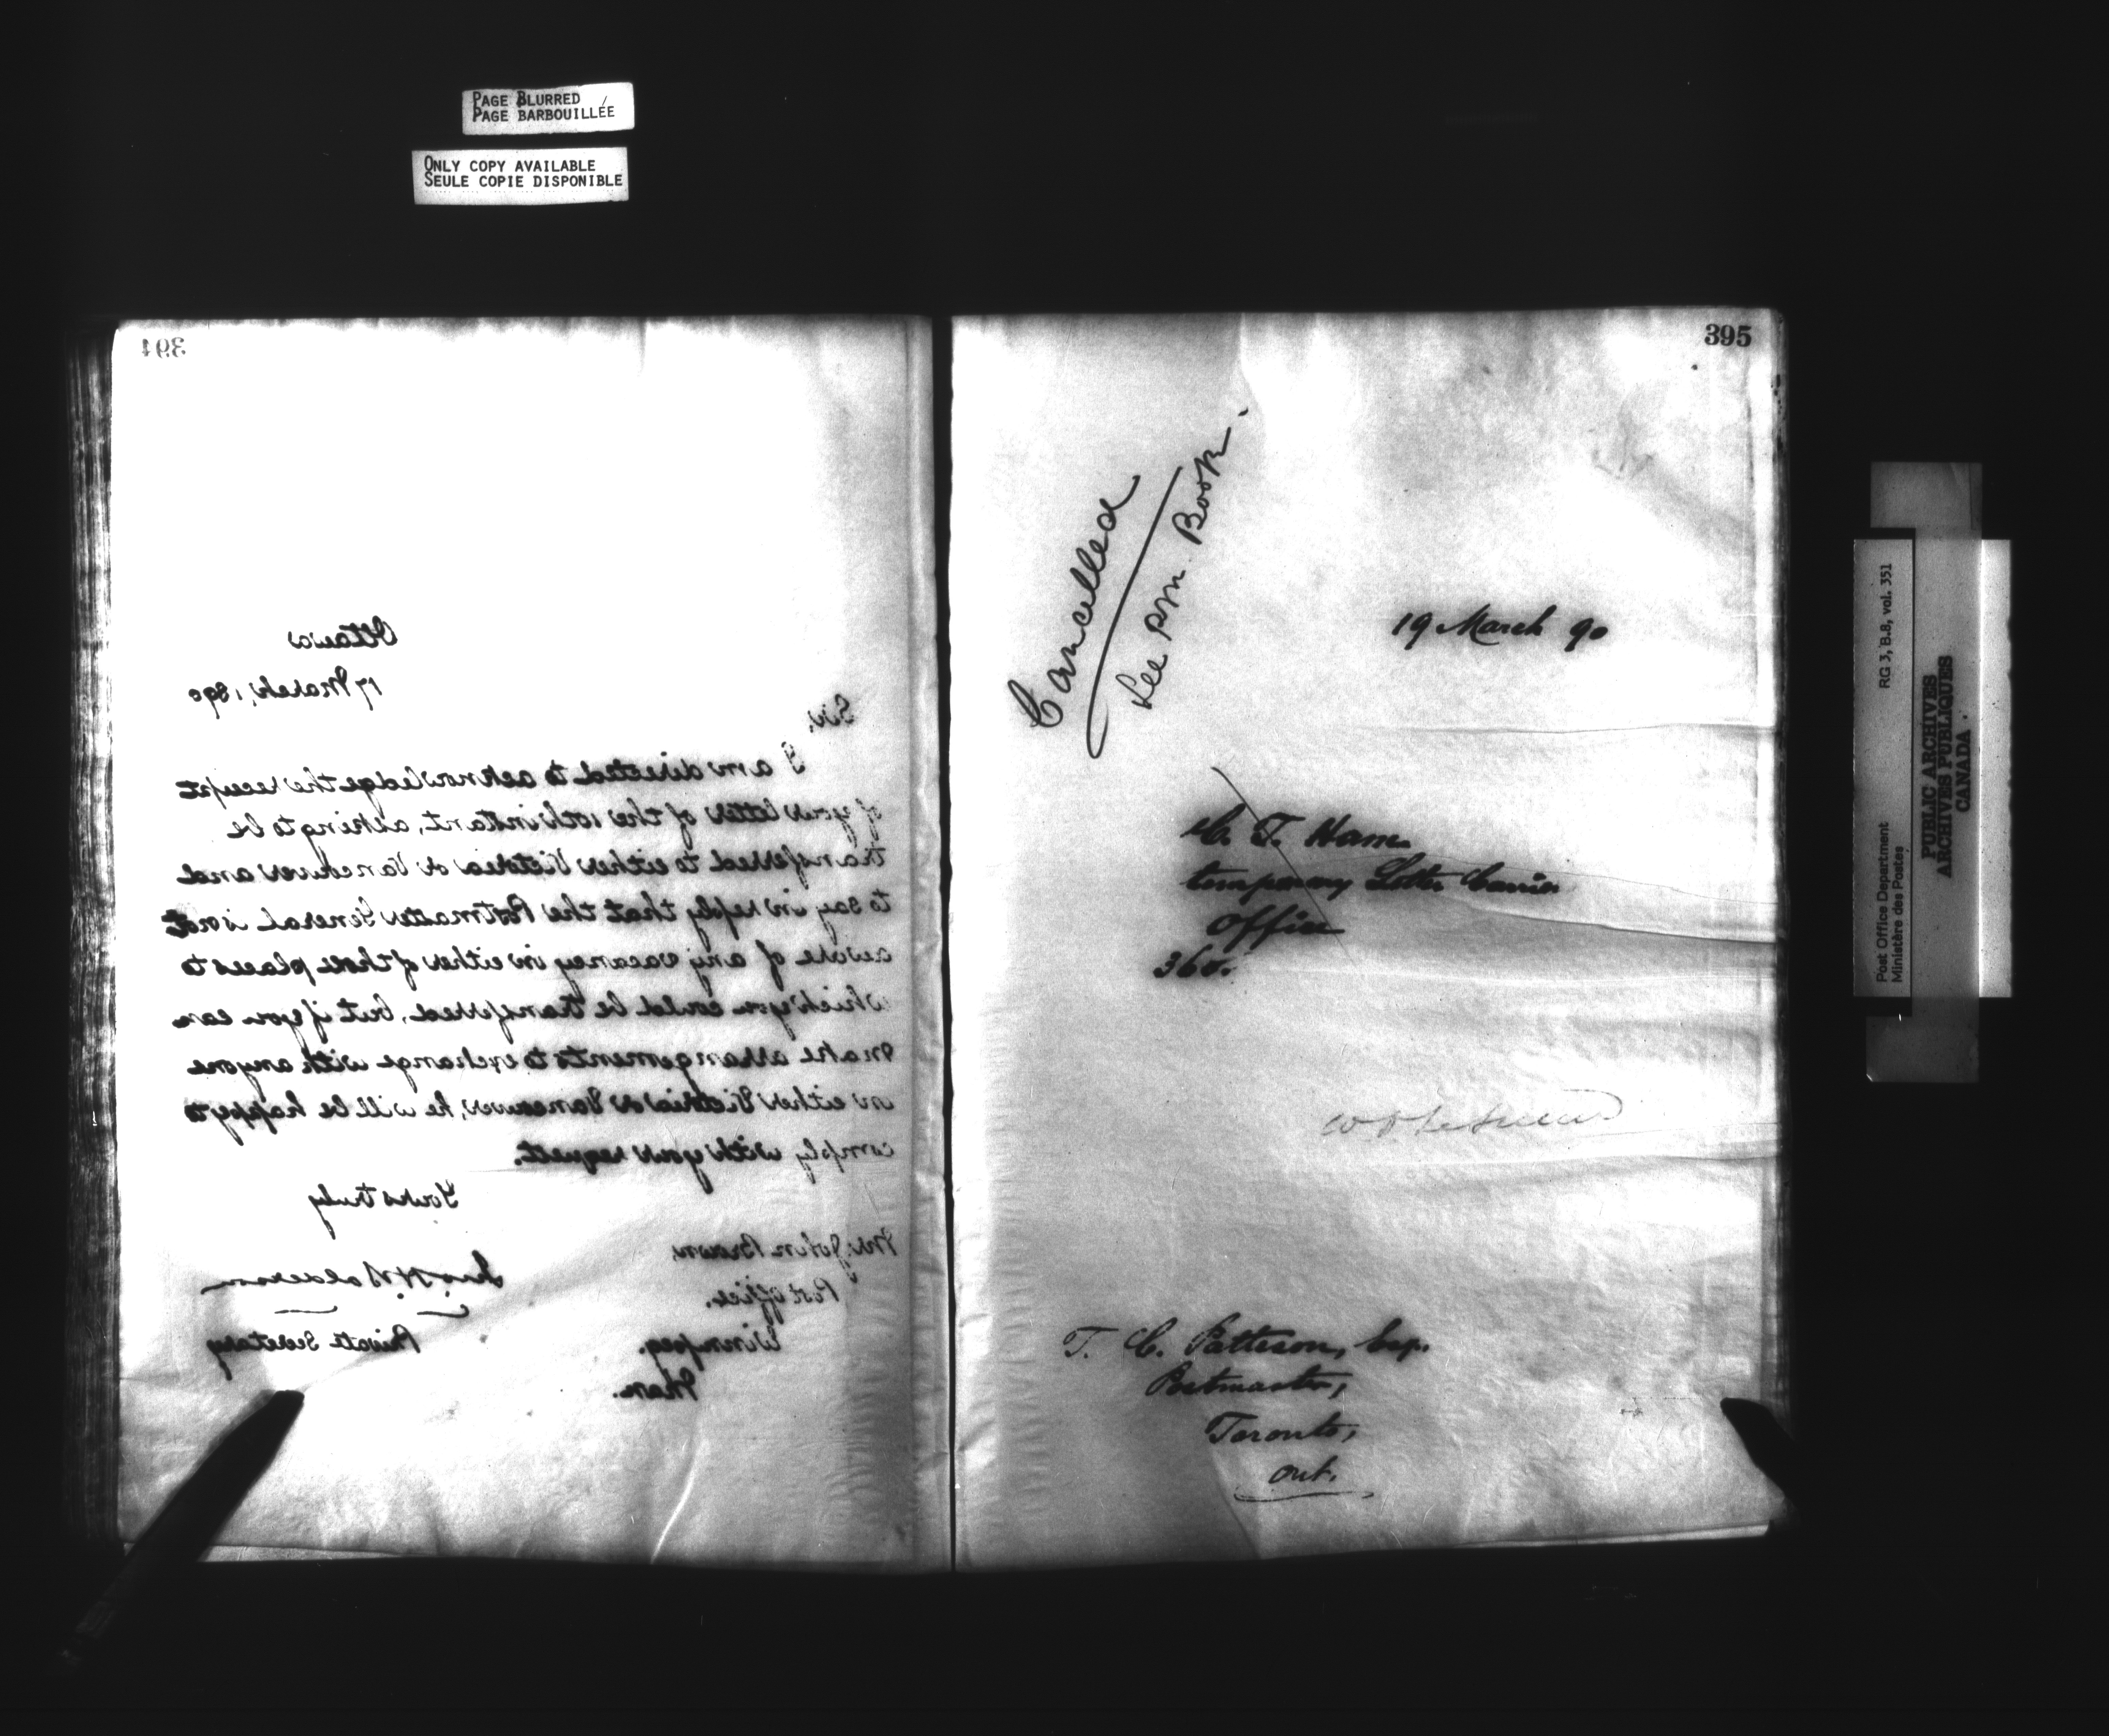 PAGE BLURRED
PAGE BARBOUILLÉE
ONLY COPY AVAILABLE
SEULE COPIE DISPONIBLE
394
Ottawa
17 March, 1890
Sir,
I am directed to acknowledge the receipt
of your letter of the 10th instant, asking to be
transferred to either Victoria or Vancouver and
to say in reply that the Postmaster General is not
aware of any vacancy in either of those places to
which you could be transferred, but, if you can
make arrangements to exchange with anyone
in either Victoria or Vancouver, he will be happy to
comply with your request.
Yours truly
Jno. H. Balderson
Private Secretary
Mr. John Brown,
Post Office,
Winnipeg,
Man.
395
Cancelled
See PM. Book.
19 March 90
C. T. Ham
temporary Letter Carrier
Office
360.
T. C. Patteson, Esq.
Postmaster,
Toronto,
Ont.
Post Office Department
Ministère des Postes
RG 3, B.8, vol. 351
PUBLIC ARCHIVES
ARCHIVES PUBLIQUES
CANADA